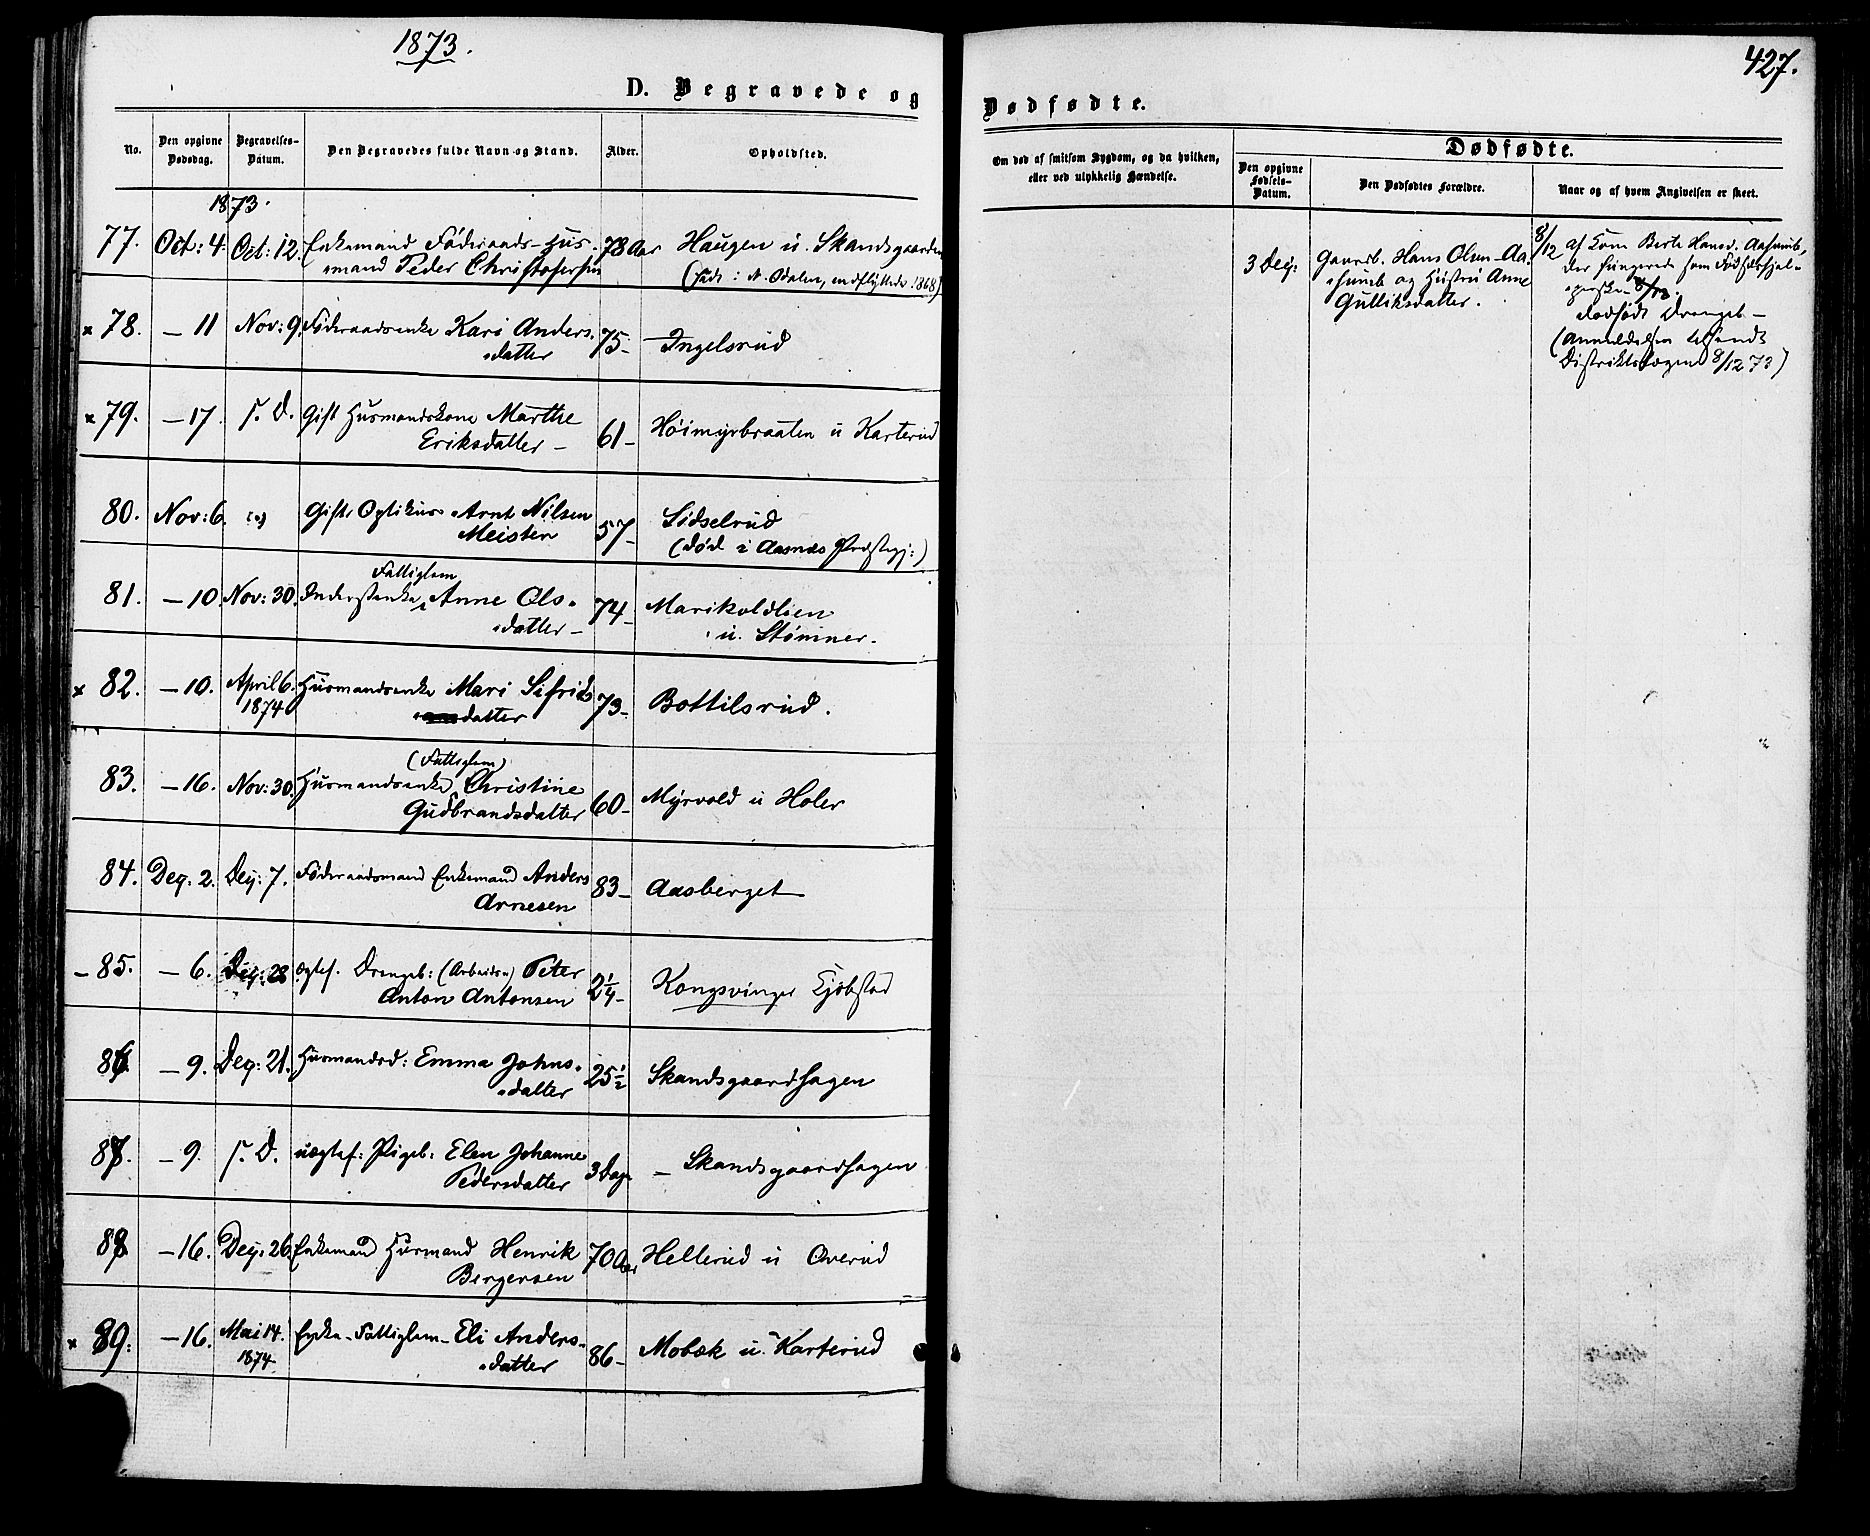 1873.
D. Begravede og
No.
Den opgivne Dødsdag.
Begravelses-Datum.
Den Begravedes fulde Navn og Stand.
Alder.
Opholdsted.
1873.
77. Oct: 4. Oct: 12. Enkemand Föderaads-Hus- 78 Aar Haugen u. Skandsgaarden
mand Peder Christofersen (født i N. Odalen, indflyttede 1868)
x 78. — 11 Nov: 9. Föderaadsenke Kari Anders- 75- Ingelsrud
datter
x 79. — 17. s. D. Gift Husmandskone Marthe 61- Höimyrbraaten u Karterud
Eriksdatter —
80. Nov: 6. Gift Optikus Arnt Nilsen 57- Sidselrud
Meisten (død i Aasnæs Præstegj:)
Fattiglem
81. — 10. Nov: 30. Inderstenke Anne Ols- 74- Marikoldlien
datter — u. Stömner.
x 82. — 10. April 6. Husmandsenke Mari Sifrids 73- Bottilsrud.
1874 datter
(Fattiglem)
83. — 16. Nov: 30. Husmandsenke Christine 60- Myrvold u Holer
Gudbrandsdatter
84. Deç: 2. Deç: 7. Föderaadsmand Enkemand Anders 83- Aasberget
Arnesen
— 85. — 6. Deç: 28 ægtef. Drengeb: (Arbeidsm) Peter 2 1/4- Kongsvinger Kjöbstad
Anton Antonsen
86. — 9. Deç: 21. Husmandsd: Emma Johns- 25 1/2 Skandsgaardhagen
datter
87. — 9. s. D. uægtef: Pigeb: Elen Johanne 3 Dage — Skandsgaardhagen
Pedersdatter
88. — 16. Deç: 26 Enkemand Husmand Henrik 70 Aar Hellerud u Overud
Bergersen
x 89. — 16. Mai 14. Enke - Fattiglem - Eli Anders- 86- Mobæk u. Karterud
1874 datter
427.
Dødfødte.
Om død af smitsom Sygdom, og da hvilken,
eller ved ulykkelig Hændelse.
Dødfødte.
Den opgivne Fødsels-Datum.
Den Dødfødtes Forældre.
Naar og af hvem Angivelsen er skeet.
3 Deç: Gaardb. Hans Olsen Aa-
sumb og Hustru Anne
Gulliksdatter.
8/12 af Kone Berte Hansd. Aasumb,
der fungerede som Fødselshjel-
perske 8/12.
dødfödt Drengeb —
(Anmeldelsen tilsendt
Distriktslægen 8/12 73)